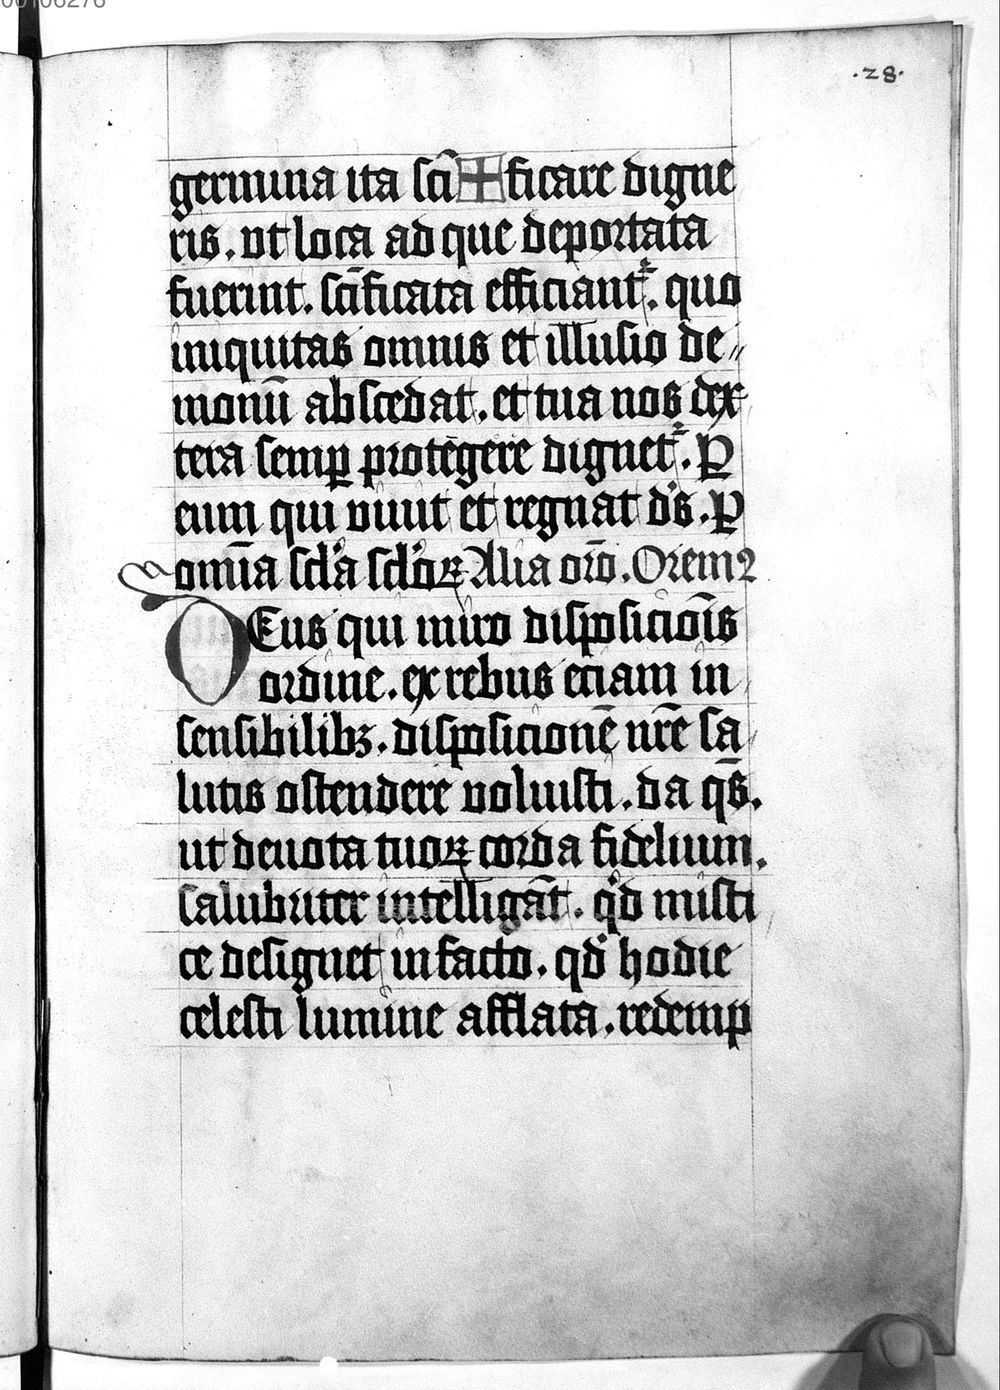 00106276
.28.
germina ita sci̅✠ficare digne
ris. ut loca ad que deportata
fuerint. sci̅ficata efficiant᷑. quo
iniquitas omnis et illusio de〃
monu̅ abscedat. et tua nos dex
tera semꝑ protegere dignet᷑. Ꝑ
eum qui viuit et regnat d̕s. Ꝑ
omi̅a scl̕a scl̕oꝝ Alia oro̅. Oremꝰ
DEus qui miro disposicio̅is
ordine. ex rebus eciam in
sensibilibꝫ. disposicione̅ nr̅e sa
lutis ostendere voluisti. da qs̅.
ut deuota tuoꝝ corda fidelium.
salubriter intelliga̅t. qd̕ misti
ce designet in facto. qd̕ hodie
celesti lumine afflata. redemp